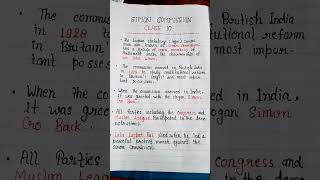 SIMON COMMISSION
CLASS 10
The Indian Statutory Commission
was a group of
Parliament under the chairmanship
of Sir John Simon.
The commission arrived in British India
in 1928 to study constitutional reform
in Britain's largest and most import-
ant possession.
When the commission arrived in India,
It was greeted with the slogan Simon
Go Back.
All Parties including the Congress and
Muslim League participated in the demo
nstrations.
Lala Lajpat Rai died when he led a
peaceful protest march against the
Simon Commission.
The commiss
in 1928 to
in Britain'
tant posses
When the c
It was gree
Go Back.
All Parties
Muslim Lea
British India
tutional reform
most impor-
ed in India,
ogan Simon
Congress and
n the demo